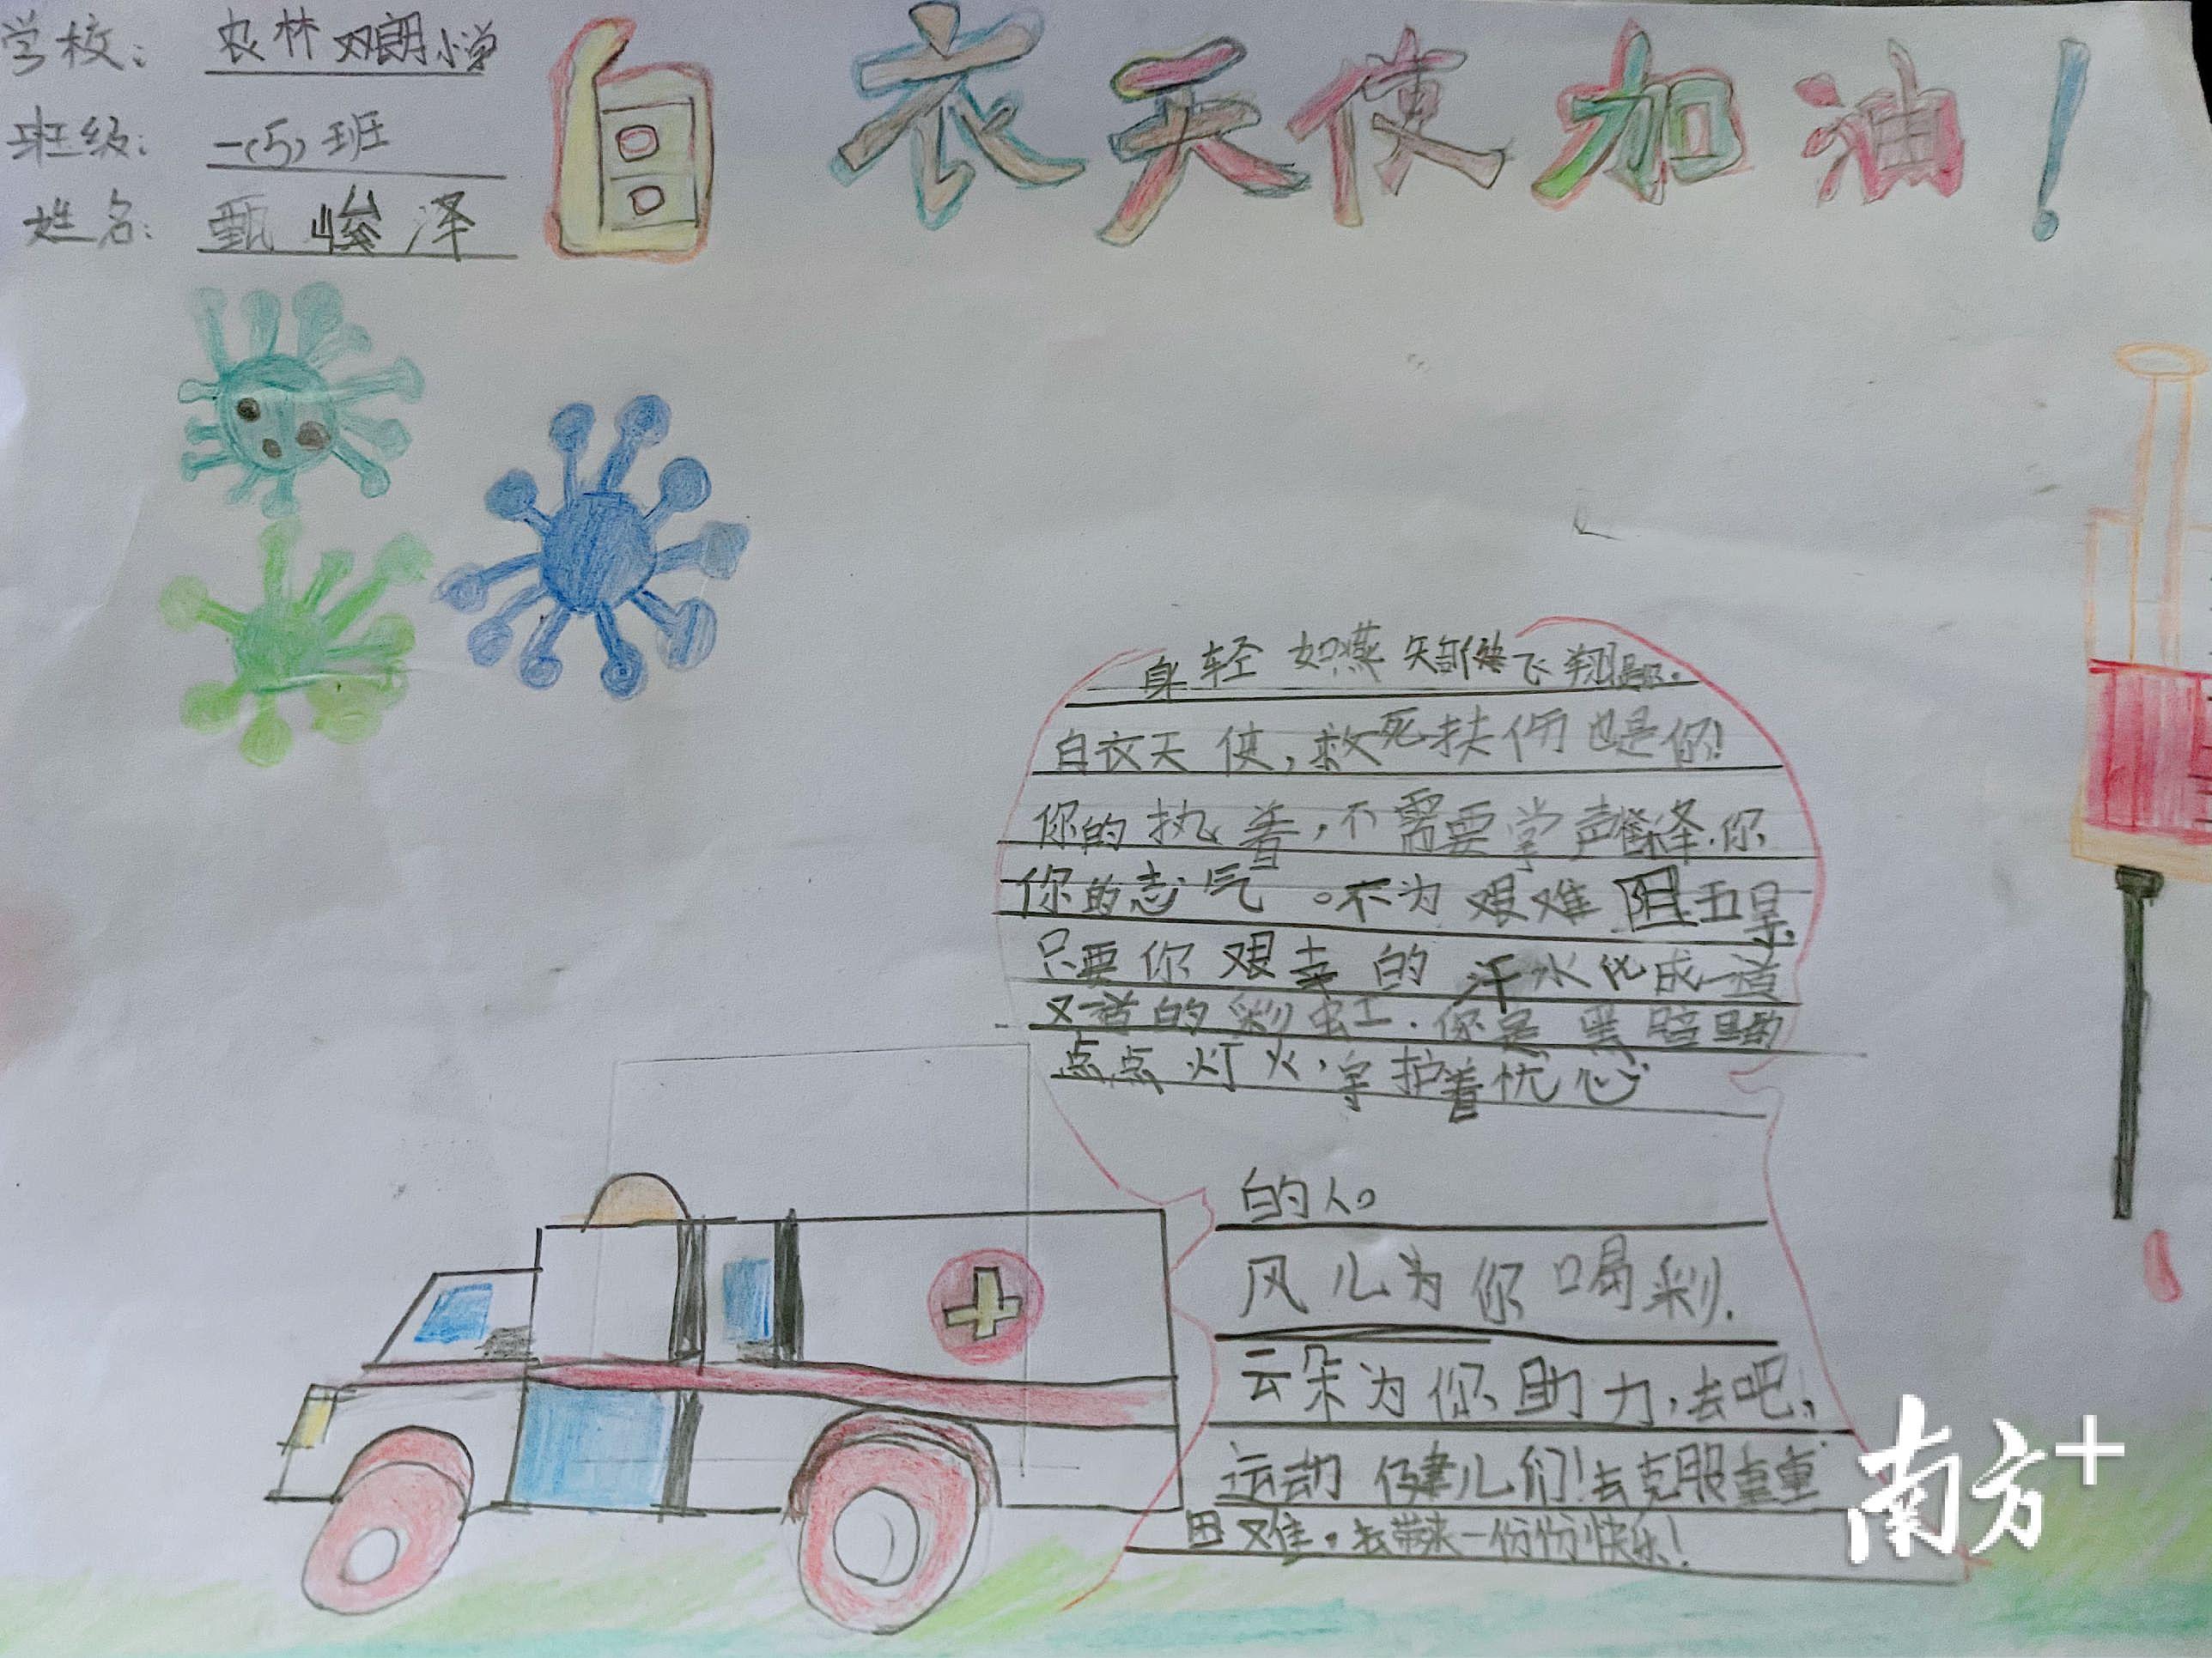 学校: 农林双朗小学
班级: 一(5)班
姓名: 甄峻泽
白衣天使加油!
身轻如燕 矫健飞翔
白衣天使,救死扶伤也是你!
你的执着,不需要掌声
你的志气。不为艰难阻
只要你艰辛的汗水化成一道
又一道的彩虹.你是黑暗里的
点点灯火,守护着忧心
的人。
风儿为你喝彩.
云朵为你助力,去吧,
运动健儿们!去克服重重
困难。去带来一份份快乐!
南方+